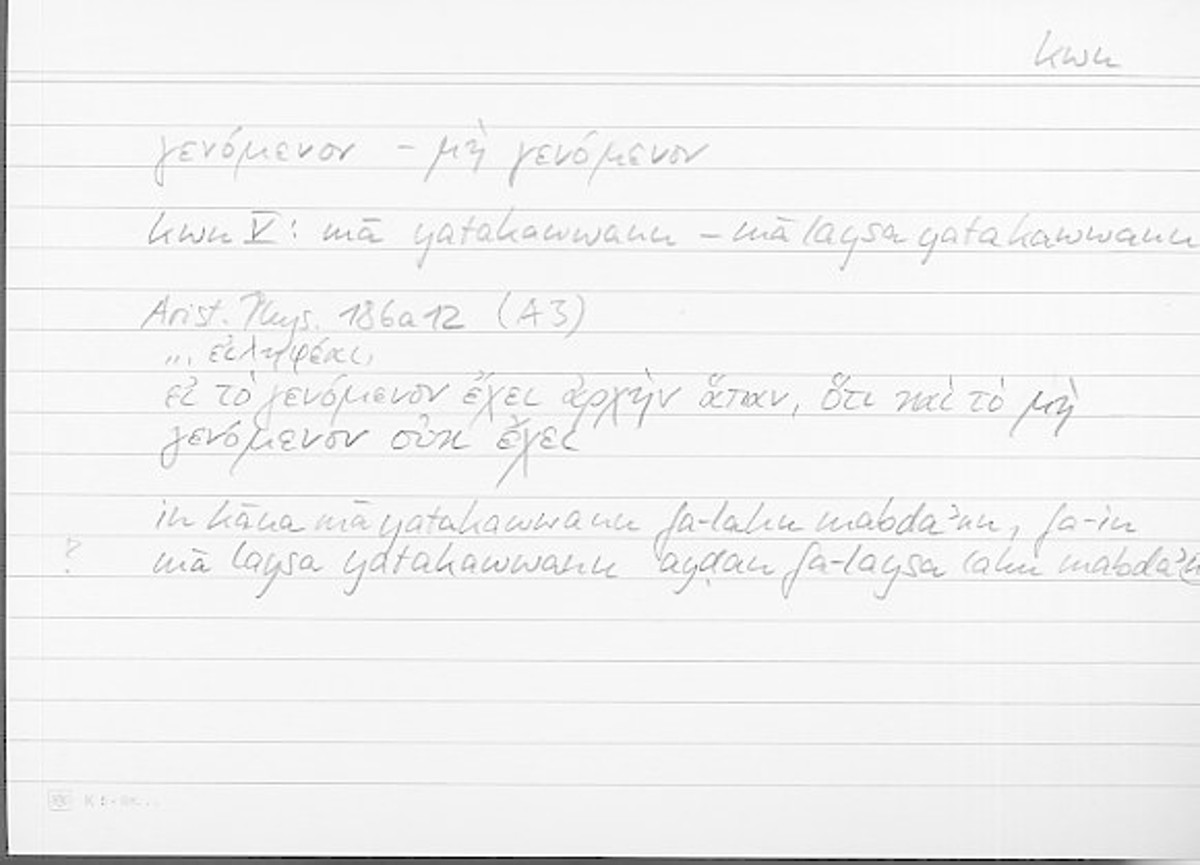 kwn
γενόμενον – μὴ γενόμενον
kwn V: mā yatakawwanu – mā laysa yatakawwanu
Arist. Phys. 186a12 (A3)
... εἰληφέναι,
εἰ τὸ γενόμενον ἔχει ἀρχὴν ἅπαν, ὅτι καὶ τὸ μὴ
γενόμενον οὐκ ἔχει
in kāna mā yatakawwanu fa-lahu mabdaʾun, fa-in
? mā laysa yatakawwanu ayḍan fa-laysa lahu